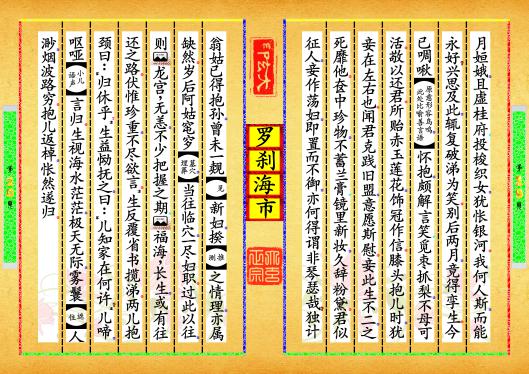 月姮娥且虚桂府投梭织女犹怅银河我何人斯而能
永好兴思及此辄复破涕为笑别后两月竟得孪生今
已啁啾【原意形容鸟鸣，此处比喻善言语】怀抱颇解言笑觅枣抓梨不母可
活敬以还君所贻赤玉莲花饰冠作信膝头抱儿时犹
妾在左右也闻君克践旧盟意愿斯慰妾此生不二之
死靡他奁中珍物不蓄兰膏镜里新妆久辞粉黛君似
征人妾作荡妇即置而不御亦何得谓非琴瑟哉独计
罗刹海市
翁姑已得抱孙曾未一觌【见】新妇揆【推测】之情理亦属
缺然岁后阿姑窀穸【墓穴埋葬】当往临穴一尽妇职过此以往
则龙宫无恙不少把握之期福海长生或有往
还之路伏惟珍重不尽欲言生反覆省书揽涕两儿抱
颈曰：归休乎生益恸抚之曰：儿知家在何许儿啼
呕哑【小儿语声】言归生视海水茫茫极天无际雾鬟人
渺烟波路穷抱儿返棹怅然遂归